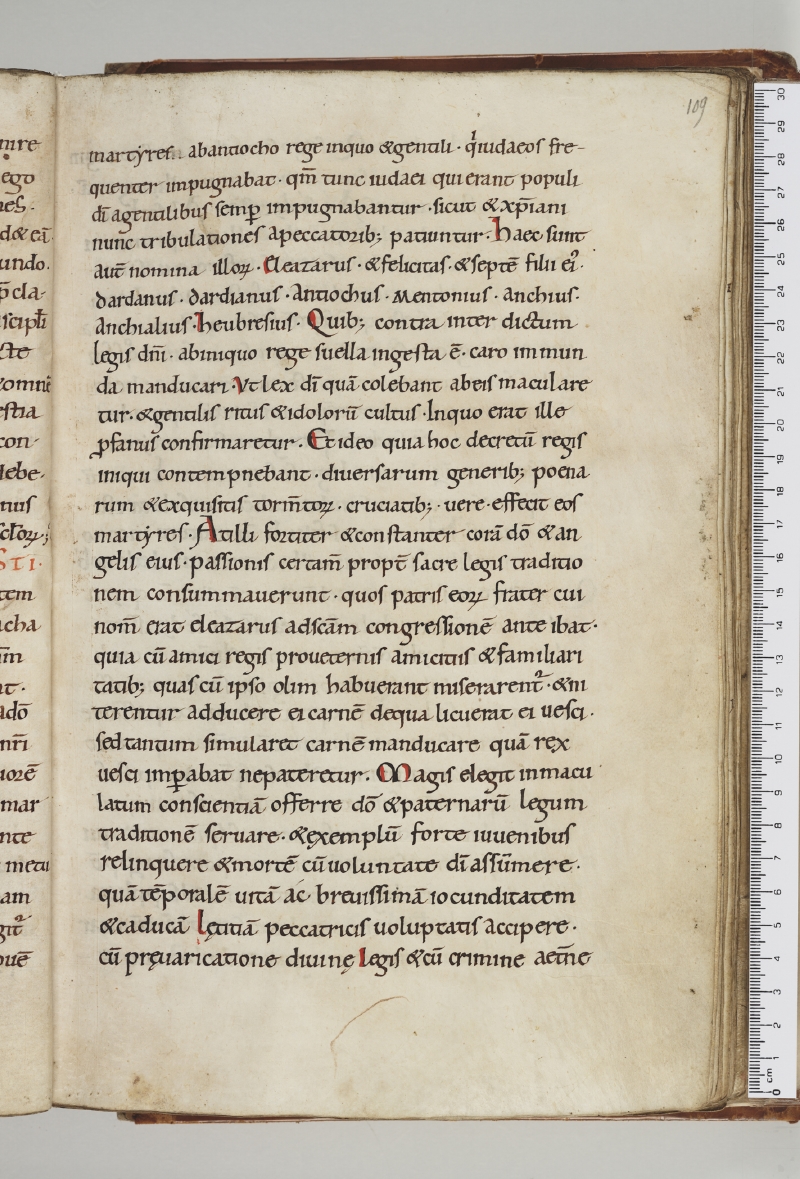 109
martyres abantiocho rege inquo &gentili · qͥiudaeos fre-
quenter impugnabat · qm̄ tunc iudaei qui erant populi
dī agentilibus semꝑ impugnabantur · sicut &xp̄iani
nunc tribulationes apeccatorib; patiuntur · Haec sunt
aut̄ nomina illoꝝ · Eleazarus · &felicitas · &septē filii ei᾽ ·
dardanus · dardianus · Antiochus · Mentonius · anchius ·
Anchialius · heubresius · Quib; contra inter dictum
legis dnī · abiniquo rege suella ingesta ē · caro inmun
da manducari · Vt lex dī quā colebant abeis maculare
tur · &gentilis ritus &idolorū cultus · Inquo erat ille
ꝓfanus confirmaretur · Et ideo quia hoc decretū regis
iniqui contempnebant · diversarum generib; poena
rum &exquisitis torm̄toꝝ · cruciatib; · vere · effecit eos
martyres · At illi fortiter &constanter corā dō &an
gelis eius · passionis certam̄ propt̄ sacre legis traditio
nem consummauerunt · quos patris eoꝝ frater cui
nom̄ erat eleazarus adscām congressionē ante ibat ·
quia cū amici regis proueternis amicitiis &familiari
tatib; quas cū ipso olim habuerant miserarent᷑ · &ni
terentur adducere ei carnē dequa licuerat ei uesci ·
sed tantum simularet carnē manducare quā rex
uesci imꝑabat nepateretur · Magis elegit inmacu
latum conscientiā offerre dō &paternarū legum
traditionē seruare · &exemplū forte iuuenibus
relinquere &mortē cū uoluntate dī assūmere ·
quā tēporalē uitā ac breuissimā iocunditatem
&caducā lętitiā peccatricis uoluptatis accipere ·
cū pręuaricatione diuinę legis &cū crimine aet̄ne